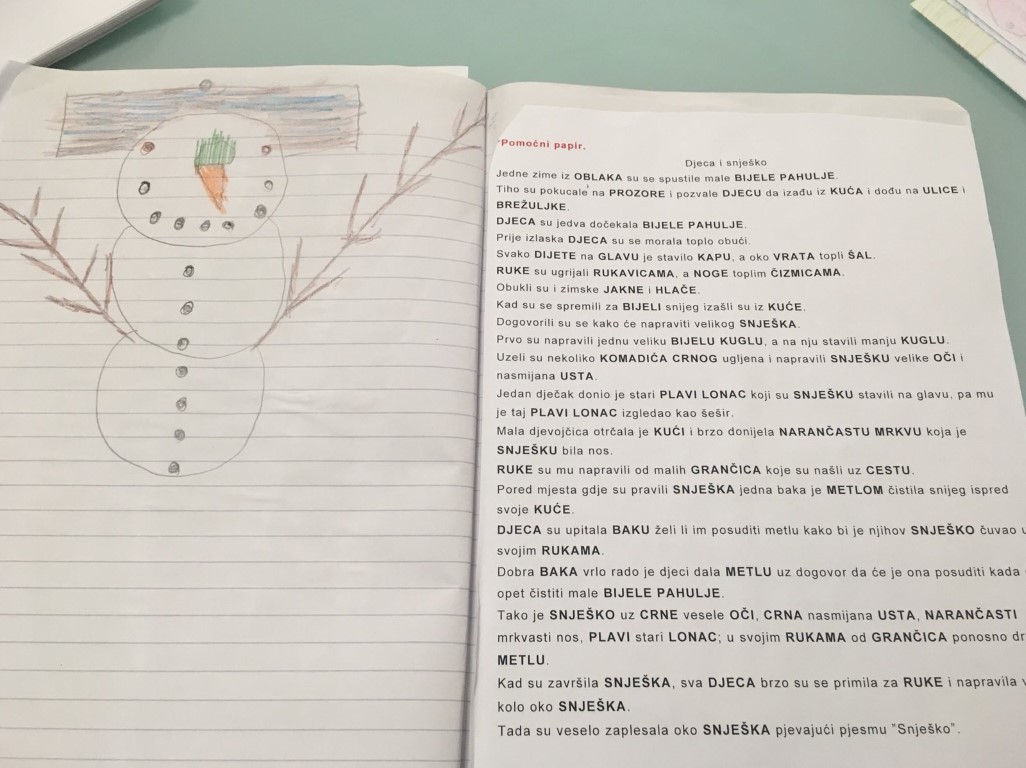 *Pomoćni papir.
Djeca i snješko
Jedne zime iz OBLAKA su se spustile male BIJELE PAHULJE.
Tiho su pokucale na PROZORE i pozvale DJECU da izađu iz KUĆA i dođu na ULICE i
BREŽULJKE.
DJECA su jedva dočekala BIJELE PAHULJE.
Prije izlaska DJECA su se morala toplo obući.
Svako DIJETE na GLAVU je stavilo KAPU, a oko VRATA topli ŠAL.
RUKE su ugrijali RUKAVICAMA, a NOGE toplim ČIZMICAMA.
Obukli su i zimske JAKNE i HLAČE.
Kad su se spremili za BIJELI snijeg izašli su iz KUĆE.
Dogovorili su se kako će napraviti velikog SNJEŠKA.
Prvo su napravili jednu veliku BIJELU KUGLU, a na nju stavili manju KUGLU.
Uzeli su nekoliko KOMADIĆA CRNOG ugljena i napravili SNJEŠKU velike OČI i
nasmijana USTA.
Jedan dječak donio je stari PLAVI LONAC koji su SNJEŠKU stavili na glavu, pa mu
je taj PLAVI LONAC izgledao kao šešir.
Mala djevojčica otrčala je KUĆI i brzo donijela NARANČASTU MRKVU koja je
SNJEŠKU bila nos.
RUKE su mu napravili od malih GRANČICA koje su našli uz CESTU.
Pored mjesta gdje su pravili SNJEŠKA jedna baka je METLOM čistila snijeg ispred
svoje KUĆE.
DJECA su upitala BAKU želi li im posuditi metlu kako bi je njihov SNJEŠKO čuvao u
svojim RUKAMA.
Dobra BAKA vrlo rado je djeci dala METLU uz dogovor da će je ona posuditi kada
opet čistiti male BIJELE PAHULJE.
Tako je SNJEŠKO uz CRNE vesele OČI, CRNA nasmijana USTA, NARANČASTI
mrkvasti nos, PLAVI stari LONAC; u svojim RUKAMA od GRANČICA ponosno
METLU.
Kad su završila SNJEŠKA, sva DJECA brzo su se primila za RUKE i napravila
kolo oko SNJEŠKA.
Tada su veselo zaplesala oko SNJEŠKA pjevajući pjesmu "Snješko".